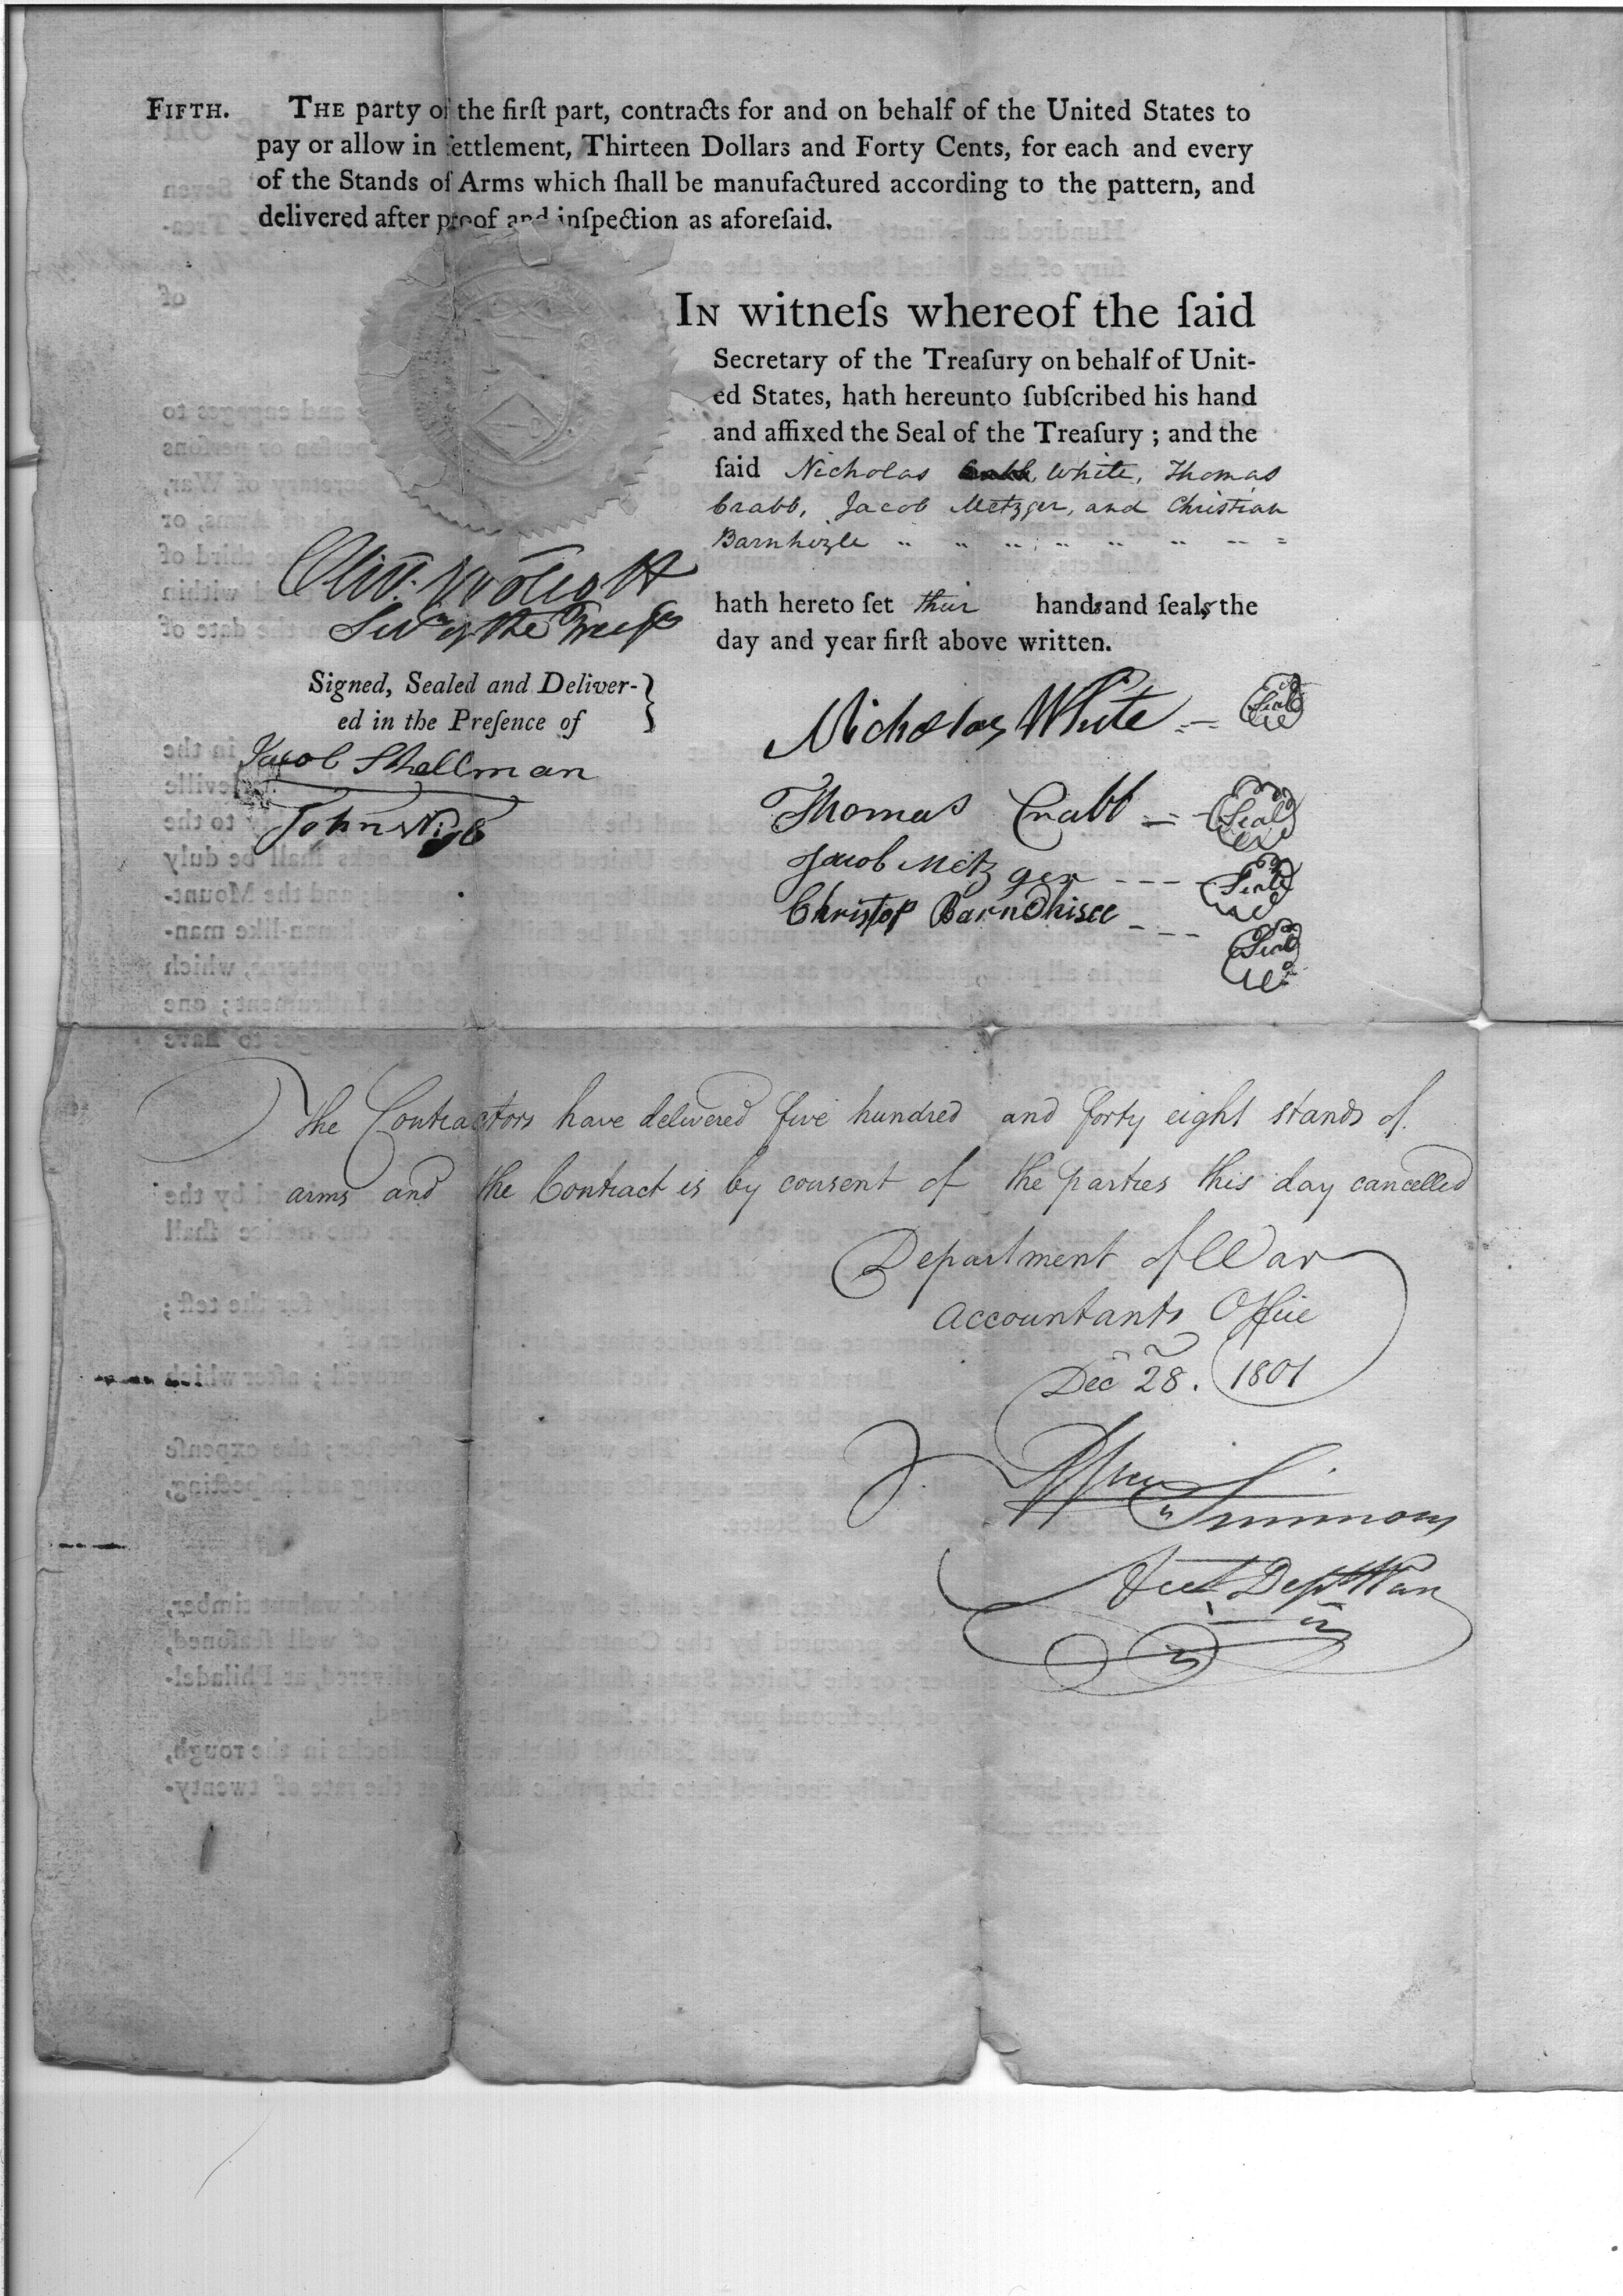 FIFTH. THE party of the firſt part, contracts for and on behalf of the United States to
pay or allow in ſettlement, Thirteen Dollars and Forty Cents, for each and every
of the Stands of Arms which ſhall be manufactured according to the pattern, and
delivered after proof and inſpection as aforeſaid.
IN witneſs whereof the ſaid
Secretary of the Treaſury on behalf of Unit-
ed States, hath hereunto ſubſcribed his hand
and affixed the Seal of the Treaſury ; and the
ſaid Nicholas White, Thomas
Crabb, Jacob Metzger, and Christian
Barnhizle
hath hereto ſet their hands and ſeals the
day and year firſt above written.
Oliv. Wolcott
Secy of the Treasy
Signed, Sealed and Deliver-
ed in the Preſence of
Jacob Shellman
John
Nicholas White Seal
Thomas Crabb Seal
Jacob Metzger Seal
Christop Barnhisel Seal
The Contractors have delivered five hundred and forty eight stands of
arms and the Contract is by consent of the parties this day cancelled
Department of War
Accountants Office
Dec 28. 1801
Wm Simmons
Acct Dept War